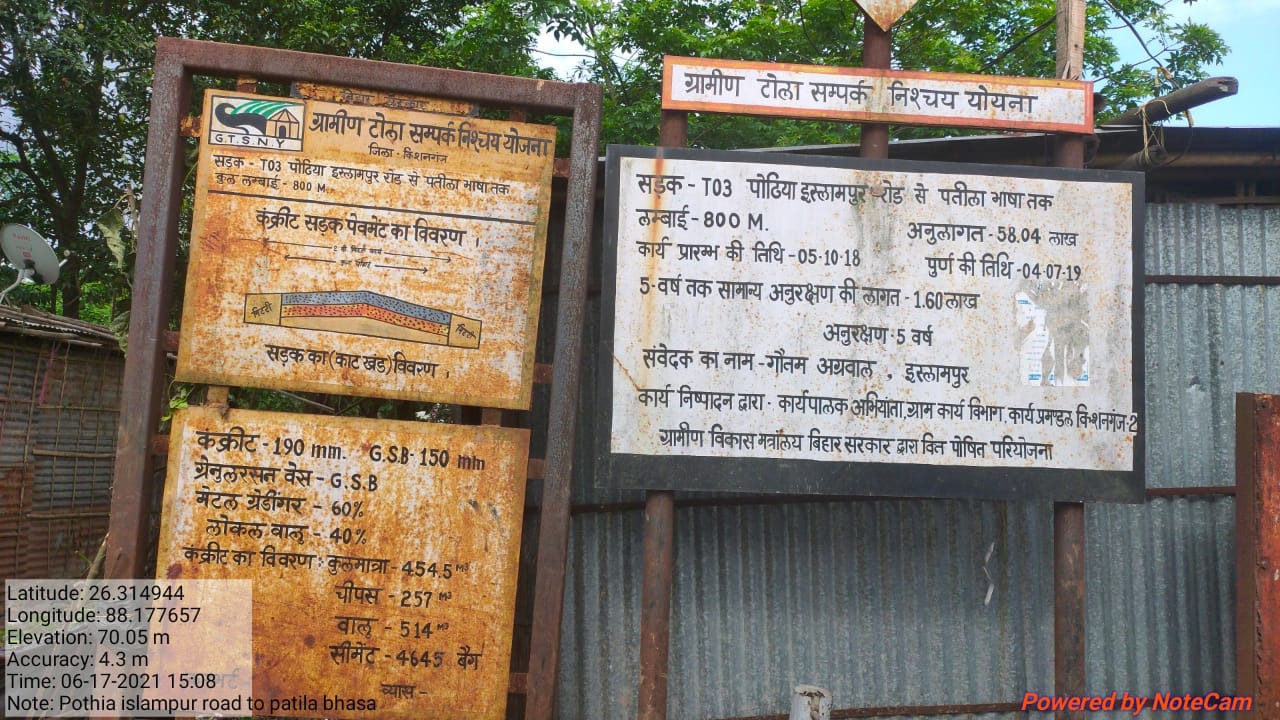 बिहार सरकार
G.T.S.N.Y
ग्रामीण टोला सम्पर्क निश्चय योजना
जिला - किशनगंज
सड़क - T03 पोठिया इस्लामपुर रोड से पतीला भाषा तक
कुल लम्बाई - 800 M.
कंक्रीट सड़क पेवमेंट का विवरण ।
मिटटी
मिटटी
सड़क का (काट खंड) विवरण ।
कंक्रीट - 190 mm. G.S.B - 150 mm
ग्रेनुलरसन वेस - G.S.B
मेटल ग्रेडींगर - 60%
लोकल वालू - 40%
कंक्रीट का विवरण : कुलमात्रा - 454.5 M³
चीपस - 257 M³
वालू - 514 M³
सीमेंट - 4645 बैग
व्यास -
ग्रामीण टोला सम्पर्क निश्चय योयना
सड़क - T03 पोठिया इस्लामपुर रोड से पतीला भाषा तक
लम्बाई - 800 M.
अनुलागत - 58.04 लाख
कार्य प्रारम्भ की तिथि - 05-10-18
पुर्ण की तिथि - 04-07-19
5 - वर्ष तक सामान्य अनुरक्षण की लागत - 1.60 लाख
अनुरक्षण - 5 वर्ष
संवेदक का नाम - गौतम अग्रवाल , इस्लामपुर
कार्य निष्पादन द्वारा - कार्यपालक अभियांता, ग्राम कार्य विभाग, कार्य प्रमण्डल किशनगंज-2
ग्रामीण विकास मंत्रालय बिहार सरकार द्वारा वित पोषित परियोजना
Latitude: 26.314944
Longitude: 88.177657
Elevation: 70.05 m
Accuracy: 4.3 m
Time: 06-17-2021 15:08
Note: Pothia islampur road to patila bhasa
Powered by NoteCam